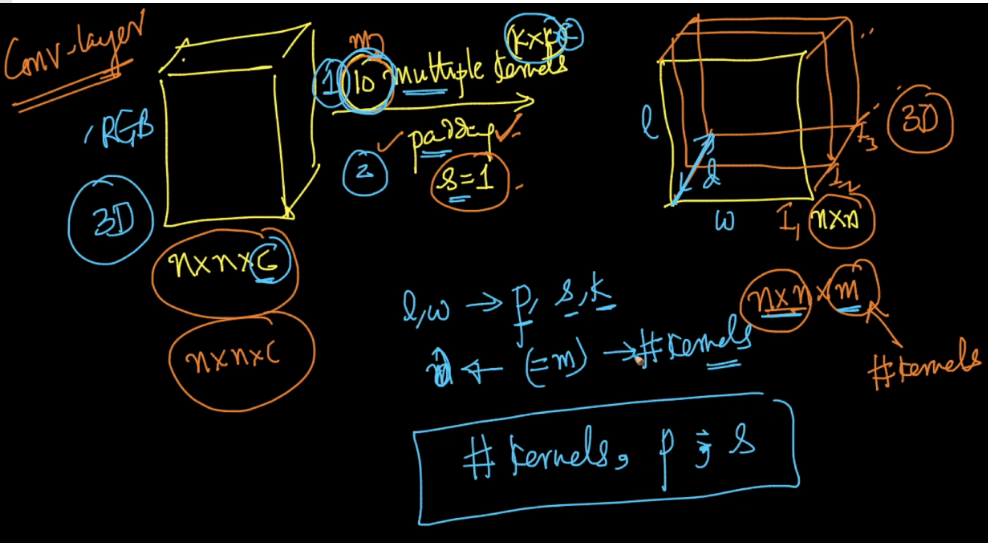 Conv-layer
RGB
3D
n×n×C
n×n×C
m
1 10 Multiple kernels
k×k×C
2 padding
s=1
l
d
w
I₁
I₂
I₃
n×n
3D
n×n×m
#kernels
l,w → p, s, k
d ← (=m) → #kernels
# kernels, p ; s